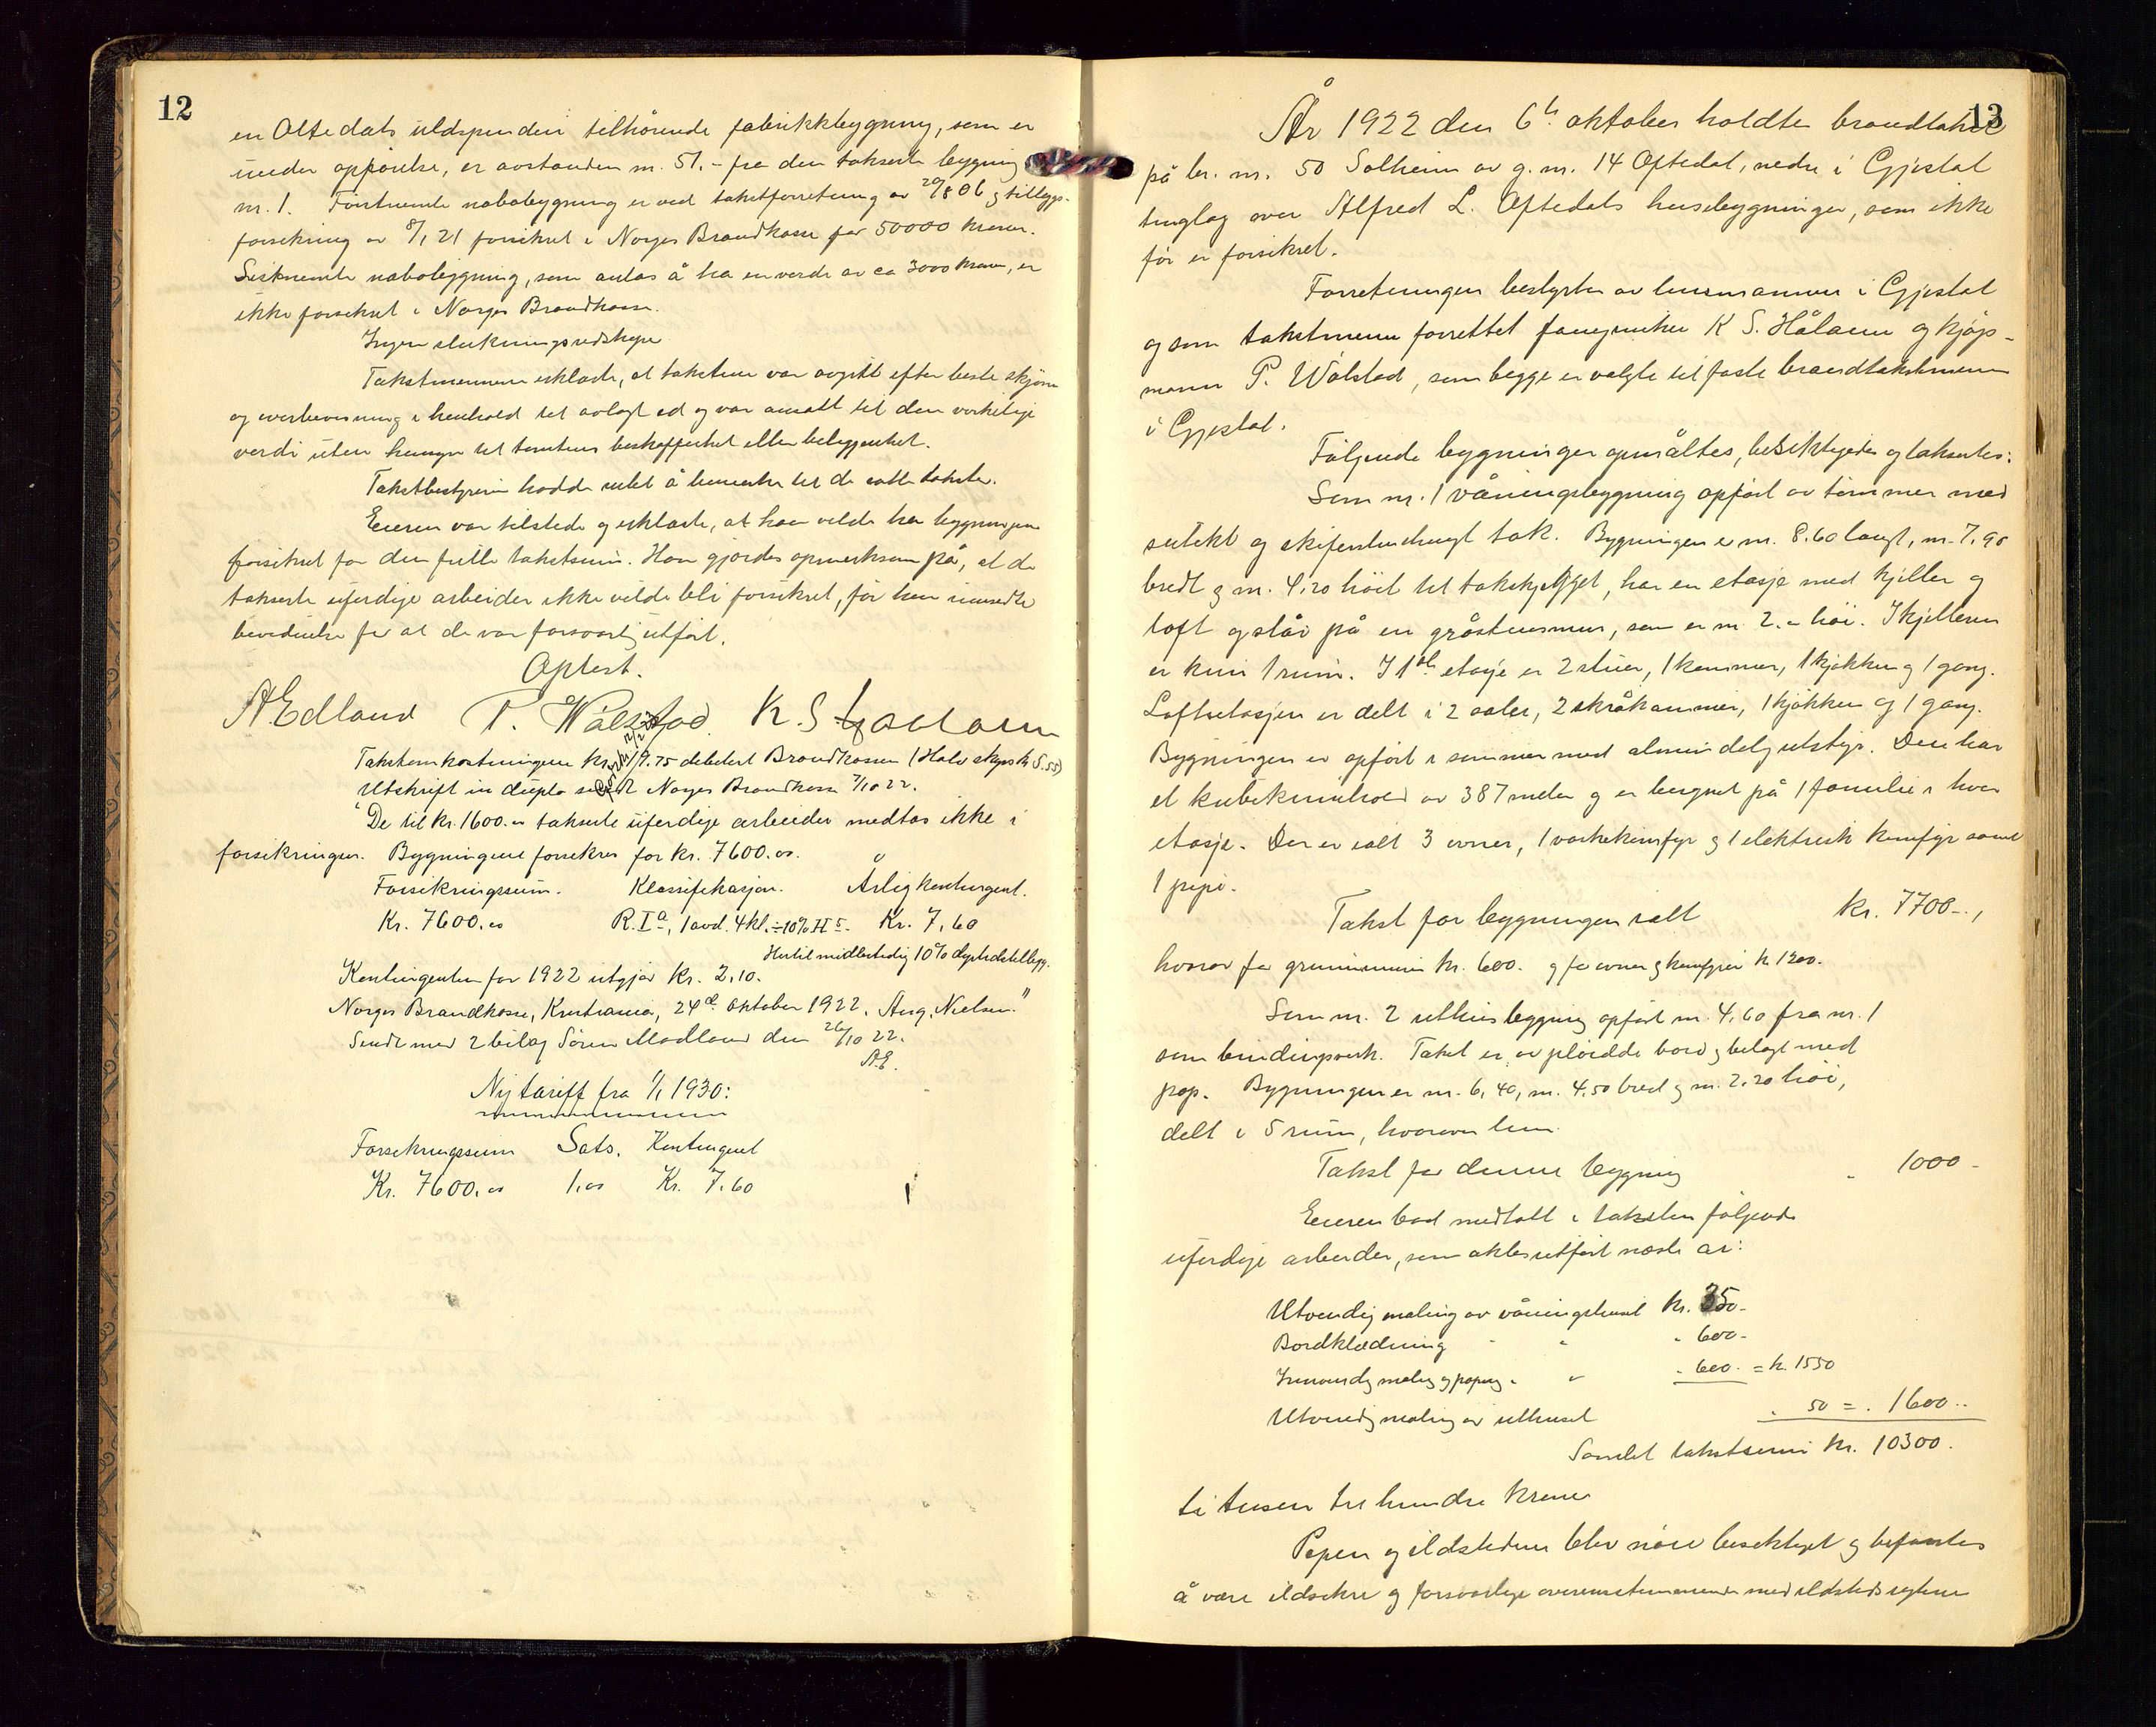 12
en Oltedals uldspinderi tilhørende fabrikkbygning, som er
under opførelse, er avstanden m. 51.- fra den takserte bygning
nr. 1. Førstnevnte nabobygning er ved takstforretning av 20/8 06 og tilleggs-
forsikring av 8/1 21 forsikret i Norges Brandkasse for 50000 kroner.
Sistnevnte nabobygning, som antas å ha en verdi av ca 3000 kroner, er
ikke forsikret i Norges Brandkasse.
Ingen slukningsredskaper
Takstmennene erklærte, at taksten var avgitt efter beste skjønn
og overbevisning i henhold til avlagt ed og var ansatt til den virkelige
verdi uten hensyn til tomtens beskaffenhet eller beliggenhet.
Takstbestyreren hadde intet å bemerke til de satte takster.
Eieren var tilstede og erklærte, at han vilde ha bygningene
forsikret for den fulle takstsum. Han gjordes opmerksom på, at de
takserte uferdige arbeider ikke vilde bli forsikret, før han innsendte
bevidnelse for at de var forsvarlig utført.
Oplest.
A Edland P. Wålstad K. S Haaland
Takstomkostningene kr. 19.75 debitert Brandkassen (Halv skyss kr 5.55)
Utskrift in duplo sendt Norges Brandkasse 7/10 22.
"De til kr. 1600.00 takserte uferdige arbeider medtas ikke i
forsikringen. Bygningene forsikres for kr. 7600.00.
Forsikringssum. Klassifikasjon. Årlig kontingent.
Kr. 7600.00 R. Ia, 1 avd. 4 kl. ÷ 10% H5. Kr. 7,60
Hertil midlertidig 10% dyrtidstillegg.
Kontingenten for 1922 utgjør kr. 2,10.
Norges Brandkasse, Kristiania, 24de oktober 1922. Aug. Nielsen."
Sendt med 2 bilag Søren Madland den 26/10 22.
AE.
Ny tariff fra 1/1 1930:
Forsikringssum Sats. Kontingent
Kr. 7600.00 1,00 Kr. 7.60
13
År 1922 den 6te oktober holdtes brandtakst
på br. nr. 50 Solheim av g. nr. 14 Oftedal, nedre i Gjestal
tinglag over Alfred L. Oftedals husebygninger, som ikke
før er forsikret.
Forretningen bestyrtes av lensmannen i Gjestal
og som takstmenn forrettet K S. Håland og kjøp-
mann P. Wålstad, som begge er valgte til faste brandtakstmenn
i Gjestal.
Følgende bygninger opmåltes, besiktigedes og taksertes:
Som nr. 1 våningsbygning opført av tømmer med
sutekt og skiferstenhengt tak. Bygningen er m. 8.60 langt, m. 7,90
bredt og m. 4,20 høit til takskjegget, har en etasje med kjeller og
loft og står på en gråstensmur, som er m 2.- høi. I kjelleren
er kun 1 rum. I 1ste etasje er 2 stuer, 1 kammer, 1 kjøkken og 1 gang.
Loftsetasjen er delt i 2 saler, 2 skråkammer, 1 kjøkken og 1 gang.
Bygningen er opført i sommer med almindelig utstyr. Den har
et kubikkinnhold av 387 meter og er beregnet på 1 familie i hver
etasje. Der er ialt 3 ovner, 1 vaskekomfyr og 1 elektrisk komfyr samt
1 pipe.
Takst for bygningen ialt kr. 7700-,
hvorav for grunnmuren kr. 600. og for ovner og komfyrer kr 1200.
Som nr. 2 uthusbygning opført m. 4,60 fra nr. 1
som bindingsverk. Taket er av pløidde bord og belagt med
pap. Bygningen er m. 6,40, m. 4,50 bred og m. 2.20 høi,
delt i 5 rum, hvorover lem.
Takst for denne bygning " 1000-
Eieren bad medtatt i taksten følgende
uferdige arbeider, som aktes utført næste år:
Utvendig maling av våningshuset kr. 350-
Bordklædning " " " 600-
Innvendig maling og paping " " " 600. = kr. 1550
Utvendig maling av uthuset " 50 = " 1600..
Samlet takstsum kr. 10300.
ti tusen tre hundre kroner
Pipen og ildstedene blev nøie besiktiget og befantes
å være ildsikre og forsvarlige overensstemmende med ildstedsreglene